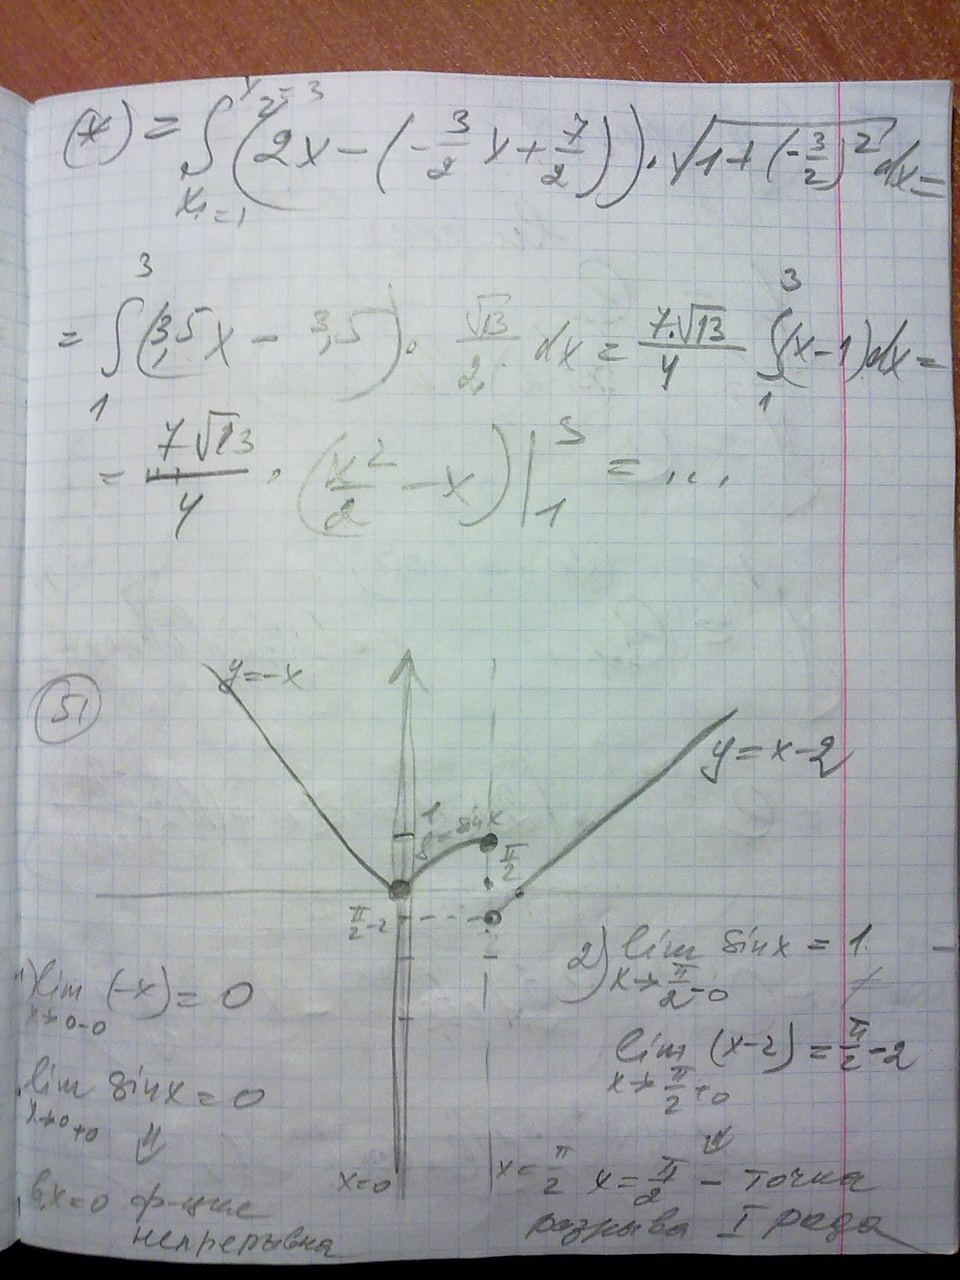 (*) = ∫_{x₁=1}^{x₂=3} (2x − (−3/2 x + 7/2)) · √(1 + (−3/2)²) dx =
= ∫_1^3 (3,5x − 3,5) · √13/2 dx = 7·√13/4 ∫_1^3 (x−1)dx =
= 7√13/4 · (x²/2 − x) |_1^3 = ...
51
y=−x
y=x−2
1
y=sinx
π/2
π/2−2
1) lim_{x→0−0} (−x) = 0
lim_{x→0+0} sinx = 0
⇓
в x=0 ф-ция
непрерывна
x=0
x=π/2
2) lim_{x→π/2−0} sinx = 1
≠
lim_{x→π/2+0} (x−2) = π/2−2
⇓
x=π/2 − точка
разрыва I рода